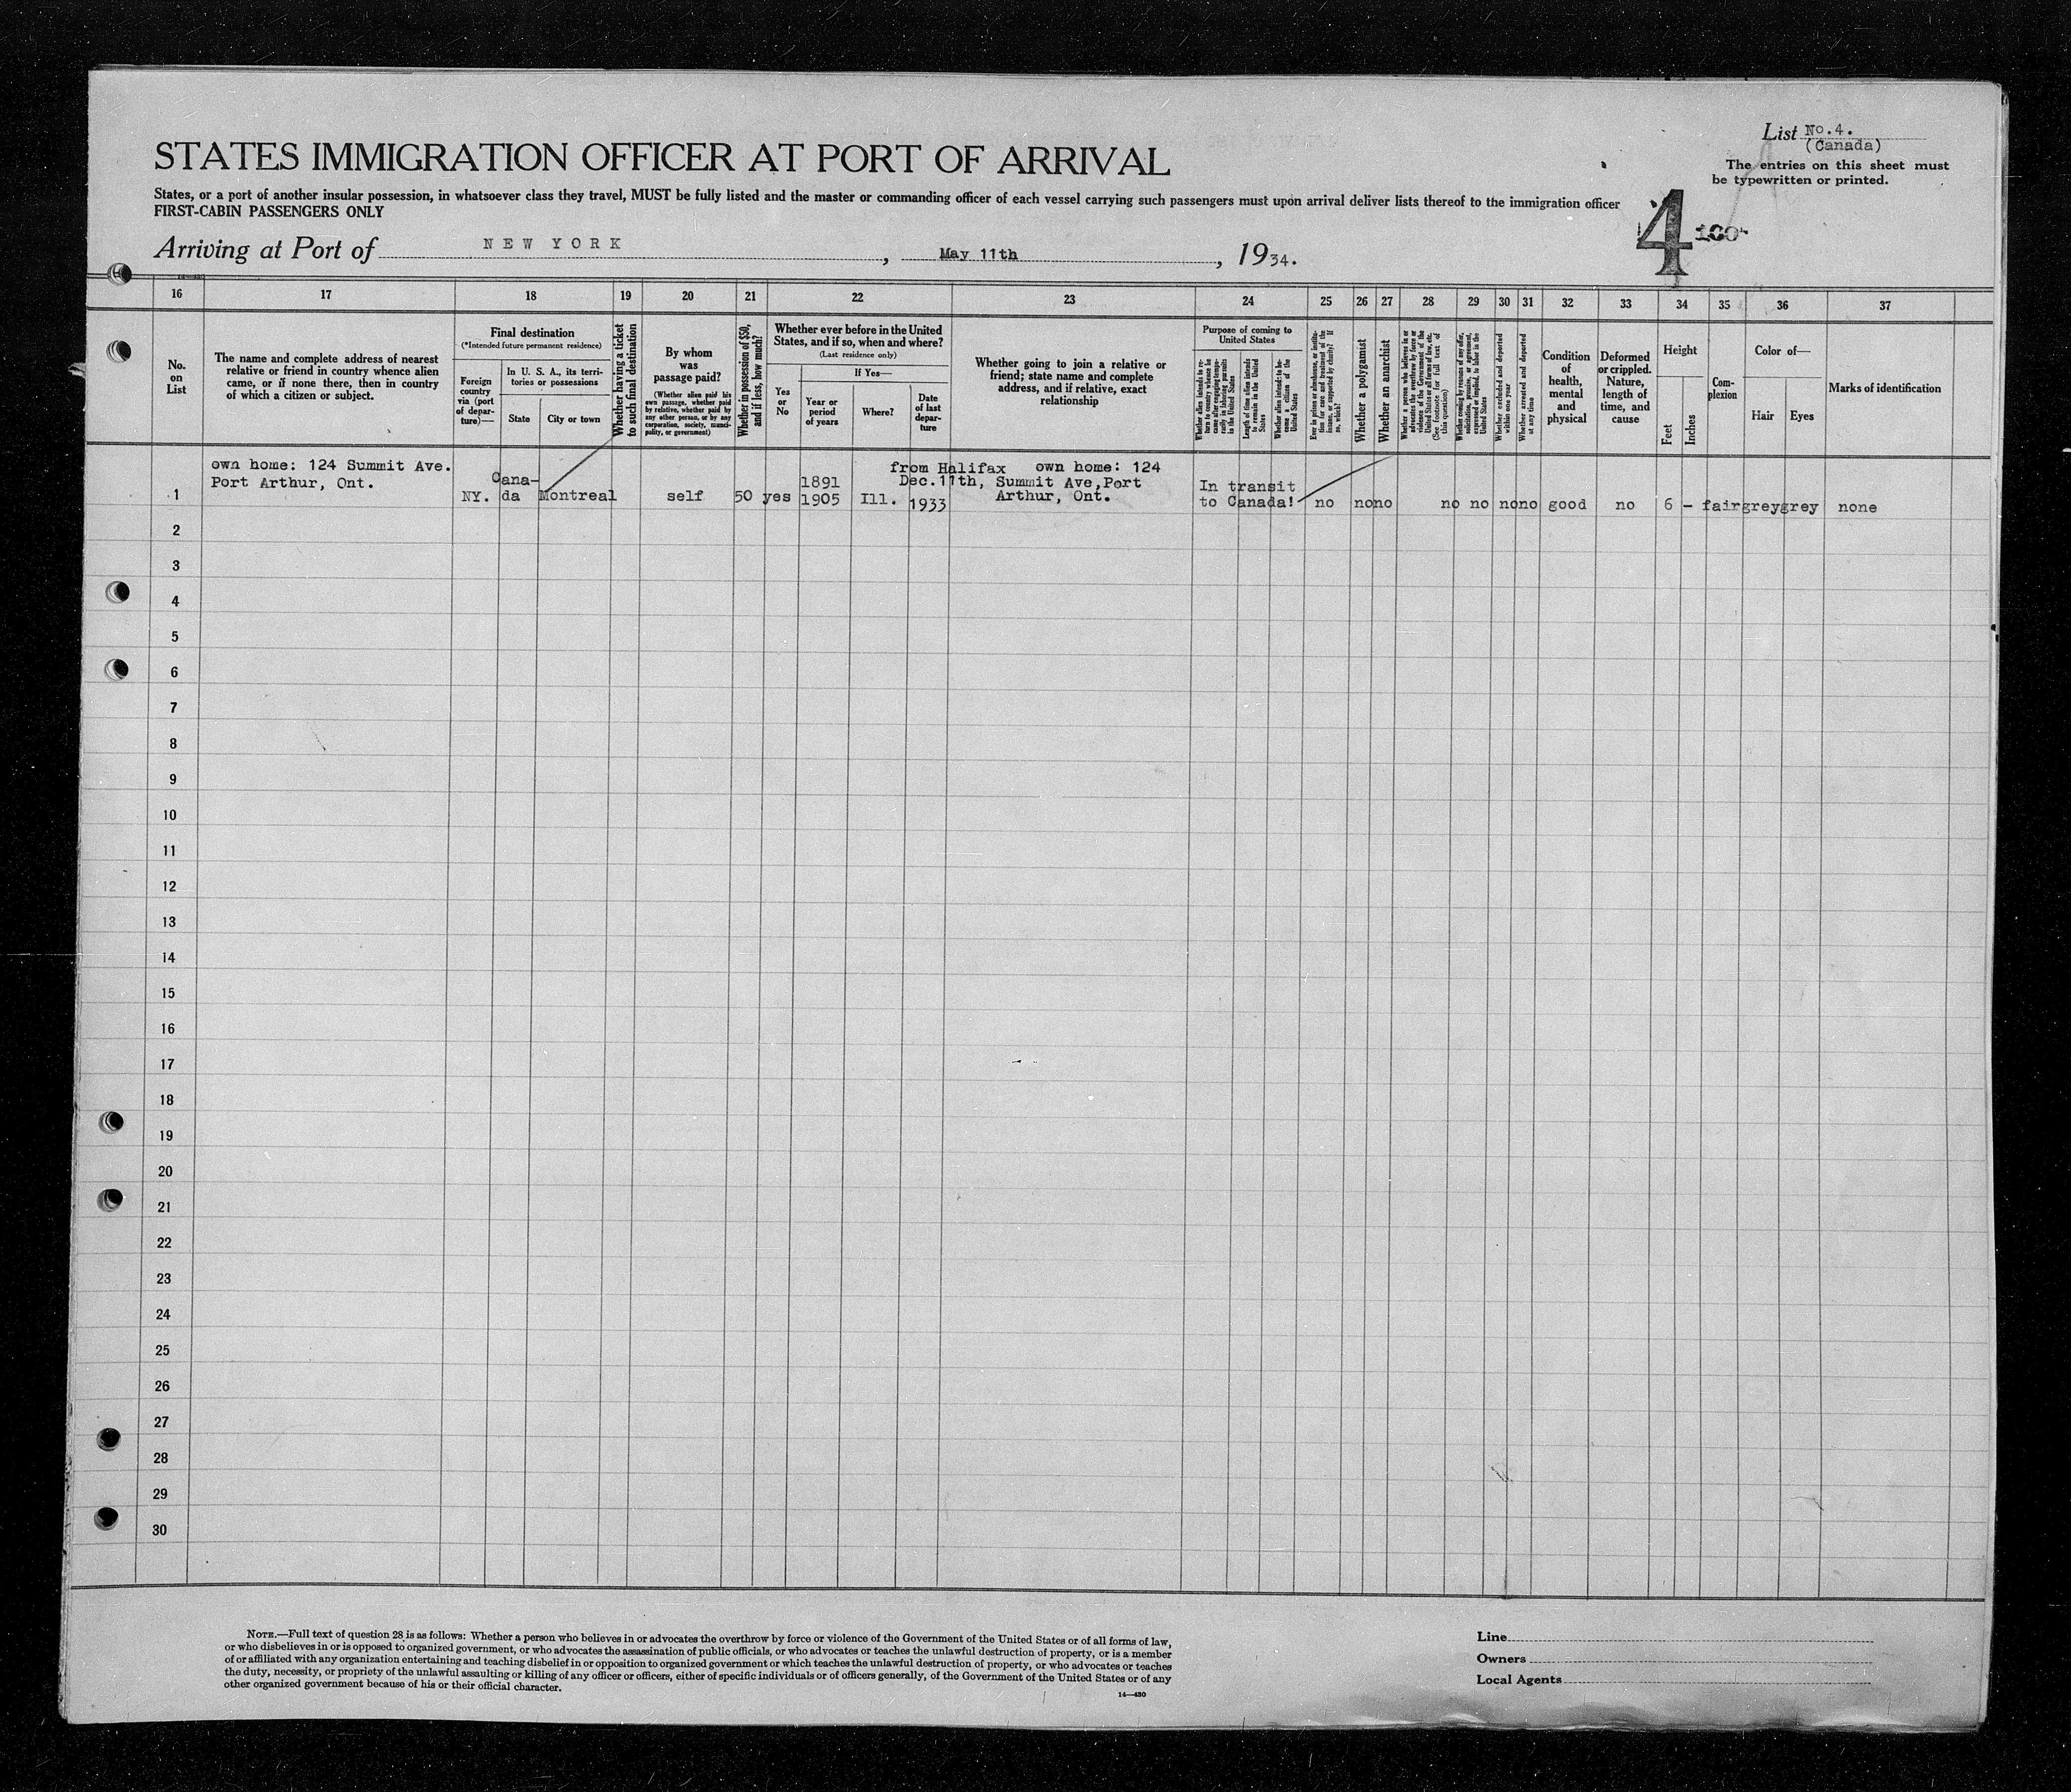 List No. 4.
(Canada)
The entries on this sheet must
be typewritten or printed.
STATES IMMIGRATION OFFICER AT PORT OF ARRIVAL
States, or a port of another insular possession, in whatsoever class they travel, MUST be fully listed and the master or commanding officer of each vessel carrying such passengers must upon arrival deliver lists thereof to the immigration officer
FIRST-CABIN PASSENGERS ONLY
4
100
Arriving at Port of NEW YORK, May 11th, 1934.
16 17 18 19 20 21 22 23 24 25 26 27 28 29 30 31 32 33 34 35 36 37
No.
on
List
The name and complete address of nearest
relative or friend in country whence alien
came, or if none there, then in country
of which a citizen or subject.
Final destination
(*Intended future permanent residence)
Foreign
country
via (port
of depar-
ture)—
In U. S. A., its terri-
tories or possessions
State
City or town
Whether having a ticket
to such final destination
By whom
was
passage paid?
(Whether alien paid his
own passage, whether paid
by relative, whether paid by
any other person, or by any
corporation, society, munici-
pality, or government)
Whether in possession of $50,
and if less, how much?
Whether ever before in the United
States, and if so, when and where?
(Last residence only)
Yes
or
No
If Yes—
Year or
period
of years
Where?
Date
of last
depar-
ture
Whether going to join a relative or
friend; state name and complete
address, and if relative, exact
relationship
Purpose of coming to
United States
Whether alien intends to re-
turn to country whence he
came after engaging tempo-
rarily in laboring pursuits
in the United States
Length of time alien intends
to remain in the United
States
Whether alien intends to be-
come a citizen of the
United States
Ever in prison or almshouse, or institu-
tion for care and treatment of the
insane, or supported by charity? If
so, which?
Whether a polygamist
Whether an anarchist
Whether a person who believes in or
advocates the overthrow by force or
violence of the Government of the
United States or all forms of law, etc.
(See footnote for full text of
this question)
Whether coming by reason of any offer,
solicitation, promise, or agreement,
expressed or implied, to labor in the
United States
Whether excluded and deported
within one year
Whether arrested and deported
at any time
Condition
of
health,
mental
and
physical
Deformed
or crippled.
Nature,
length of
time, and
cause
Height
Feet
Inches
Com-
plexion
Color of—
Hair
Eyes
Marks of identification
own home: 124 Summit Ave.
Port Arthur, Ont.
NY. Cana-
da Montreal
self 50 yes
1891
1905 Ill.
from Halifax
Dec.11th,
1933
own home: 124
Summit Ave, Port
Arthur, Ont.
In transit
to Canada!
no no no no no no no good no 6 - fair grey grey none
1
2
3
4
5
6
7
8
9
10
11
12
13
14
15
16
17
18
19
20
21
22
23
24
25
26
27
28
29
30
NOTE.—Full text of question 28 is as follows: Whether a person who believes in or advocates the overthrow by force or violence of the Government of the United States or of all forms of law,
or who disbelieves in or is opposed to organized government, or who advocates the assassination of public officials, or who advocates or teaches the unlawful destruction of property, or is a member
of or affiliated with any organization entertaining and teaching disbelief in or opposition to organized government or which teaches the unlawful destruction of property, or who advocates or teaches
the duty, necessity, or propriety of the unlawful assaulting or killing of any officer or officers, either of specific individuals or of officers generally, of the Government of the United States or of any
other organized government because of his or their official character.
14—430
Line
Owners
Local Agents